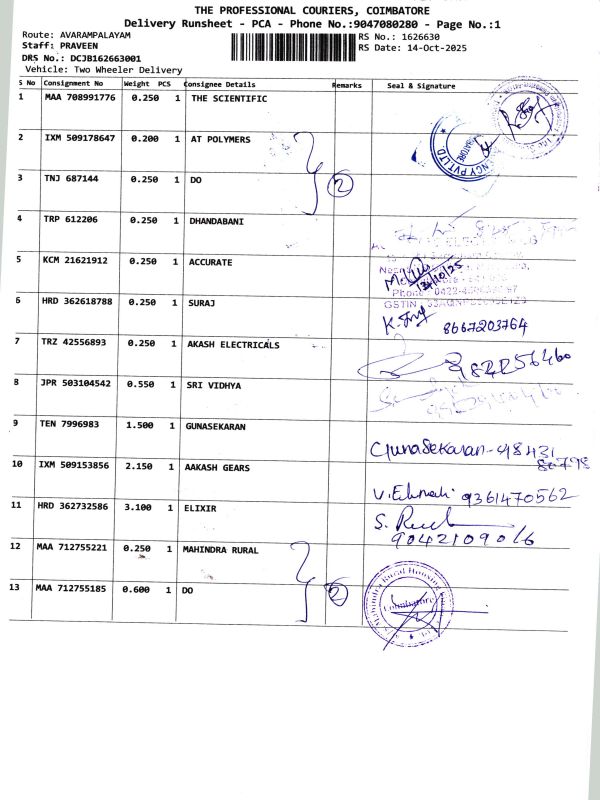 THE PROFESSIONAL COURIERS, COIMBATORE
Delivery Runsheet - PCA - Phone No.:9047080280 - Page No.:1
Route: AVARAMPALAYAM
RS No.: 1626630
Staff: PRAVEEN
RS Date: 14-Oct-2025
DRS No.: DCJB162663001
Vehicle: Two Wheeler Delivery
S No Consignment No Weight PCS Consignee Details Remarks Seal & Signature
1 MAA 708991776 0.250 1 THE SCIENTIFIC
2 IXM 509178647 0.200 1 AT POLYMERS
3 TNJ 687144 0.250 1 DO 2
4 TRP 612206 0.250 1 DHANDABANI
5 KCM 21621912 0.250 1 ACCURATE
6 HRD 362618788 0.250 1 SURAJ 8667203764
7 TRZ 42556893 0.250 1 AKASH ELECTRICALS
8 JPR 503104542 0.550 1 SRI VIDHYA
9 TEN 7996983 1.500 1 GUNASEKARAN GunaSekaran - 98431
86798
10 IXM 509153856 2.150 1 AAKASH GEARS 9361470562
11 HRD 362732586 3.100 1 ELIXIR
12 MAA 712755221 0.250 1 MAHINDRA RURAL
13 MAA 712755185 0.600 1 DO 2
Mahindra Rural Housing
Coimbatore